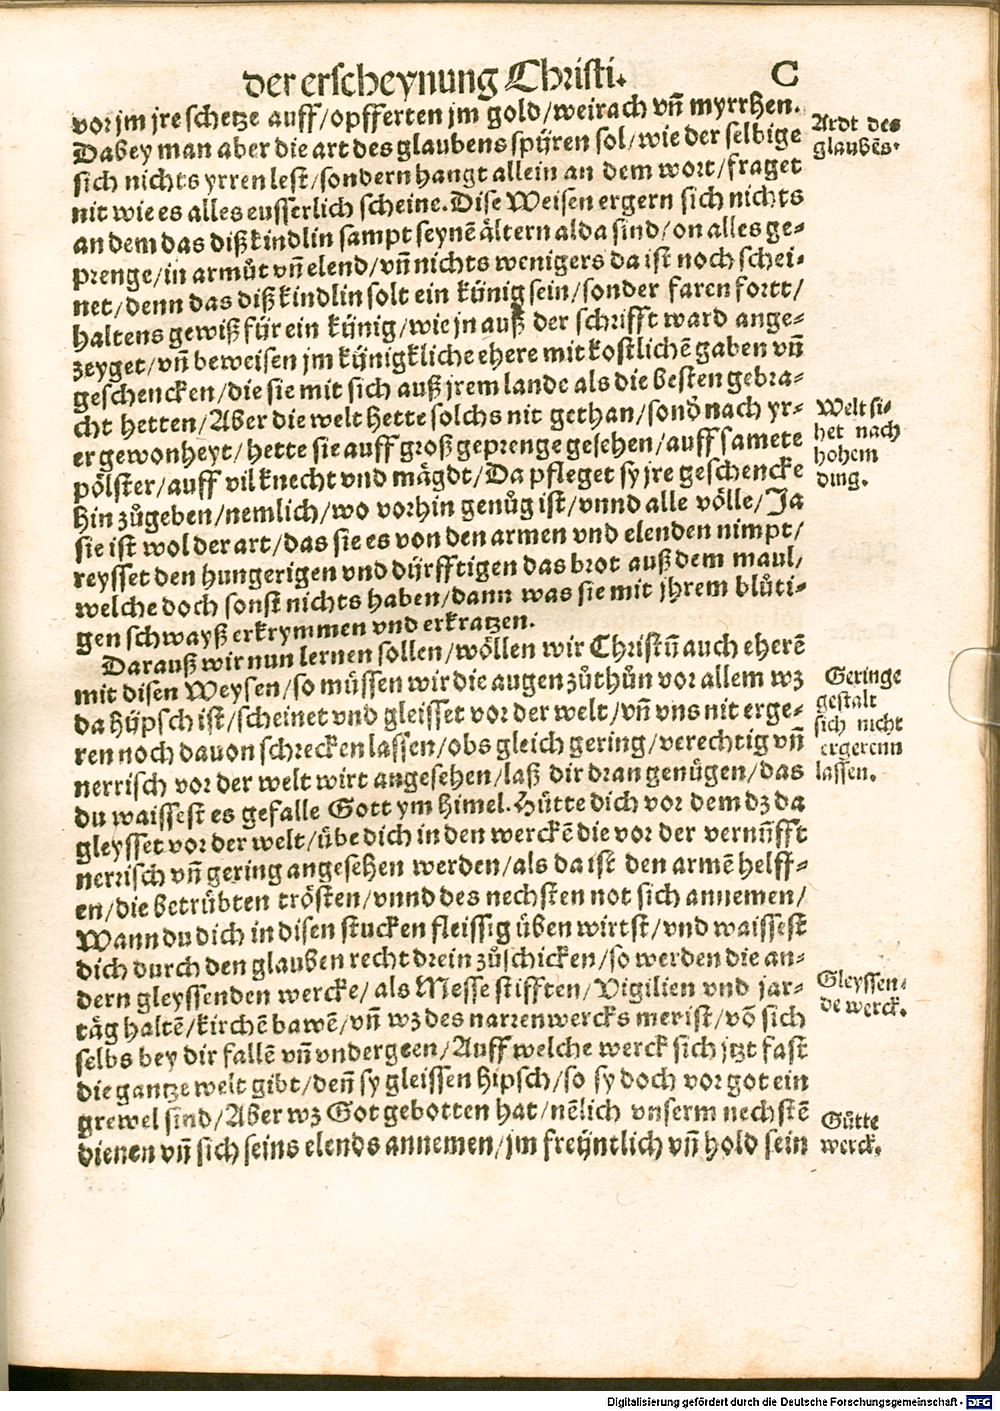 der erscheynung Christi. C
vor jm jre schetze auff/opfferten jm gold/weirach vñ myrrhen.
Dabey man aber die art des glaubens spüren sol/wie der selbige
sich nichts yrren lest/sondern hangt allein an dem wort/fraget
nit wie es alles eusserlich scheine. Dise Weisen ergern sich nichts
an dem das diß kindlin sampt seynẽ ältern alda sind/on alles ge-
prenge/in armůt vñ elend/vñ nichts wenigers da ist noch schei-
net/denn das diß kindlin solt ein künig sein/sonder faren fortt/
haltens gewiß für ein künig/wie jn auß der schrifft ward ange-
zeyget/vñ beweisen jm künigkliche ehere mit kostlichẽ gaben vñ
geschencken/die sie mit sich auß jrem lande als die besten gebra-
cht hetten/Aber die welt hette solchs nit gethan/sonđ nach yr-
er gewonheyt/hette sie auff groß geprenge gesehen/auff samete
pölster/auff vil knecht vnd mägdt/Da pfleget sy jre geschencke
hin zůgeben/nemlich/wo vorhin genůg ist/vnnd alle völle/Ja
sie ist wol der art/das sie es von den armen vnd elenden nimpt/
reysset den hungerigen vnd dürfftigen das brot auß dem maul/
welche doch sonst nichts haben/dann was sie mit jhrem blůti-
gen schwayß erkrymmen vnd erkratzen.
Darauß wir nun lernen sollen/wöllen wir Christũ auch eherẽ
mit disen Weysen/so müssen wir die augen zůthůn vor allem wz
da hüpsch ist/scheinet vnd gleisset vor der welt/vñ vns nit erge-
ren noch dauon schrecken lassen/obs gleich gering/verechtig vñ
nerrisch vor der welt wirt angesehen/laß dir dran genügen/das
du waissest es gefalle Gott ym himel. Hütte dich vor dem dz da
gleysset vor der welt/übe dich in den werckẽ die vor der vernũfft
nerrisch vñ gering angesehen werden/als da ist den armẽ helff-
en/die betrübten trösten/vnnd des nechsten not sich annemen/
Wann du dich in disen stucken fleissig üben wirtst/vnd waissest
dich durch den glauben recht drein zůschicken/so werden die an-
dern gleyssenden wercke/als Messe stifften/Vigilien vnd jar-
täg haltẽ/kirchẽ bawẽ/vñ wz des narrenwercks mer ist/võ sich
selbs bey dir fallẽ vñ vndergeen/Auff welche werck sich jtzt fast
die gantze welt gibt/deñ sy gleissen hipsch/so sy doch vor got ein
grewel sind/Aber wz Got gebotten hat/nẽlich vnserm nechstẽ
dienen vñ sich seins elends annemen/jm freüntlich vñ hold sein
Ardt des
glaubẽs.
Welt si-
het nach
hohem
ding.
Geringe
gestalt
sich nicht
ergerenn
lassen.
Gleyssen-
de werck.
Gůtte
werck.
Digitalisierung gefördert durch die Deutsche Forschungsgemeinschaft - DFG